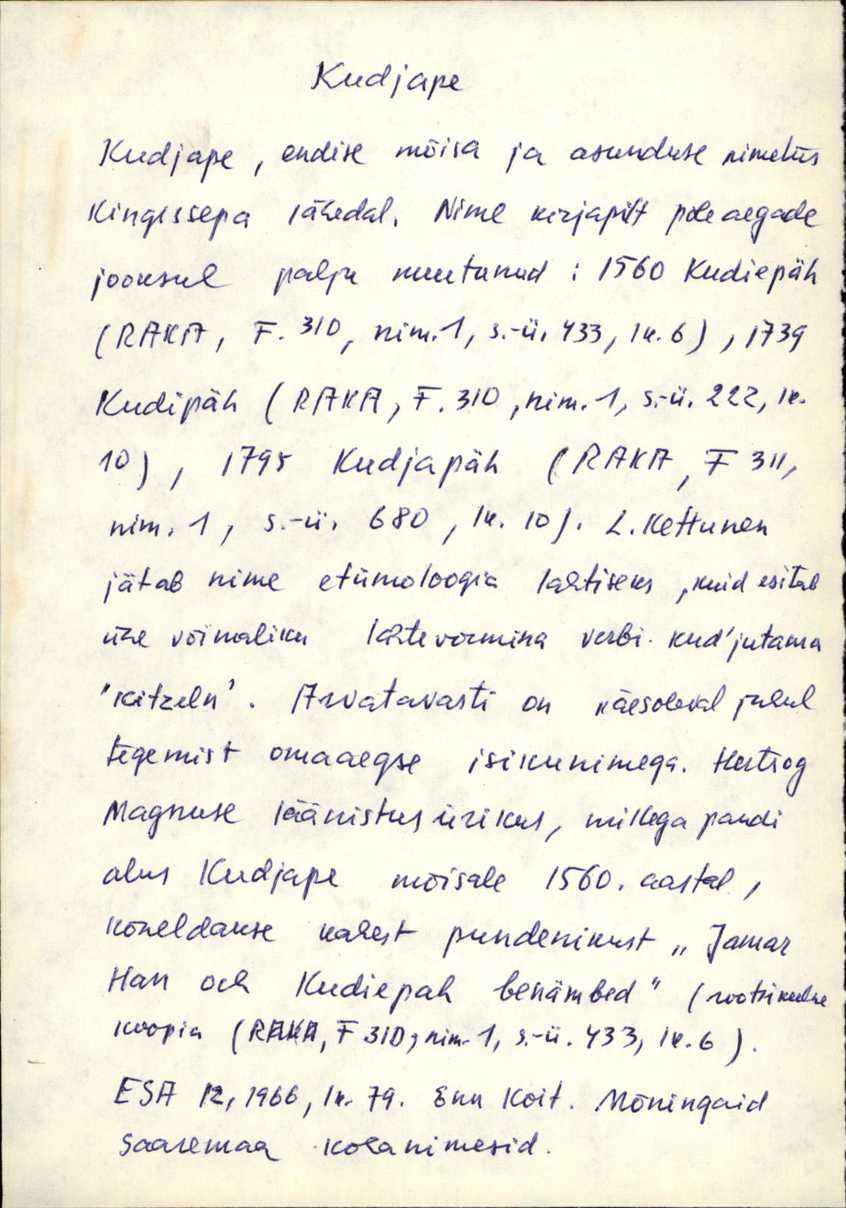 Kudjape
Kudjape, endise mõisa ja asunduse nimetus
Kingissepa lähedal. Nime kirjapilt pole aegade
jooksul palju muutunud : 1560 Kudiepäh
(RAKA, F. 310, nim. 1, s.-ü. 433, lk. 6), 1739
Kudipäh (RAKA, F. 310, nim. 1, s.-ü. 222, lk.
10), 1795 Kudjapäh (RAKA, F 311,
nim. 1, s.-ü. 680, lk. 10). L. Kettunen
jätab nime etümoloogia lahtiseks, kuid esitab
ühe võimaliku lähtevormina verbi kud'jutama
'kitzeln'. Arvatavasti on käesoleval juhul
tegemist omaaegse isikunimega. Hertsog
Magnuse läänistusürikus, millega pandi
alus Kudjape mõisale 1560. aastal,
kõneldakse kahest pundenikust „Jamar
Han och Kudiepäh benämbed" (rootsikeelne
koopia (RAKA, F 310, nim. 1, s.-ü. 433, lk. 6).
ESA 12, 1966, lk. 79. Enn Koit. Mõningaid
Saaremaa kohanimesid.